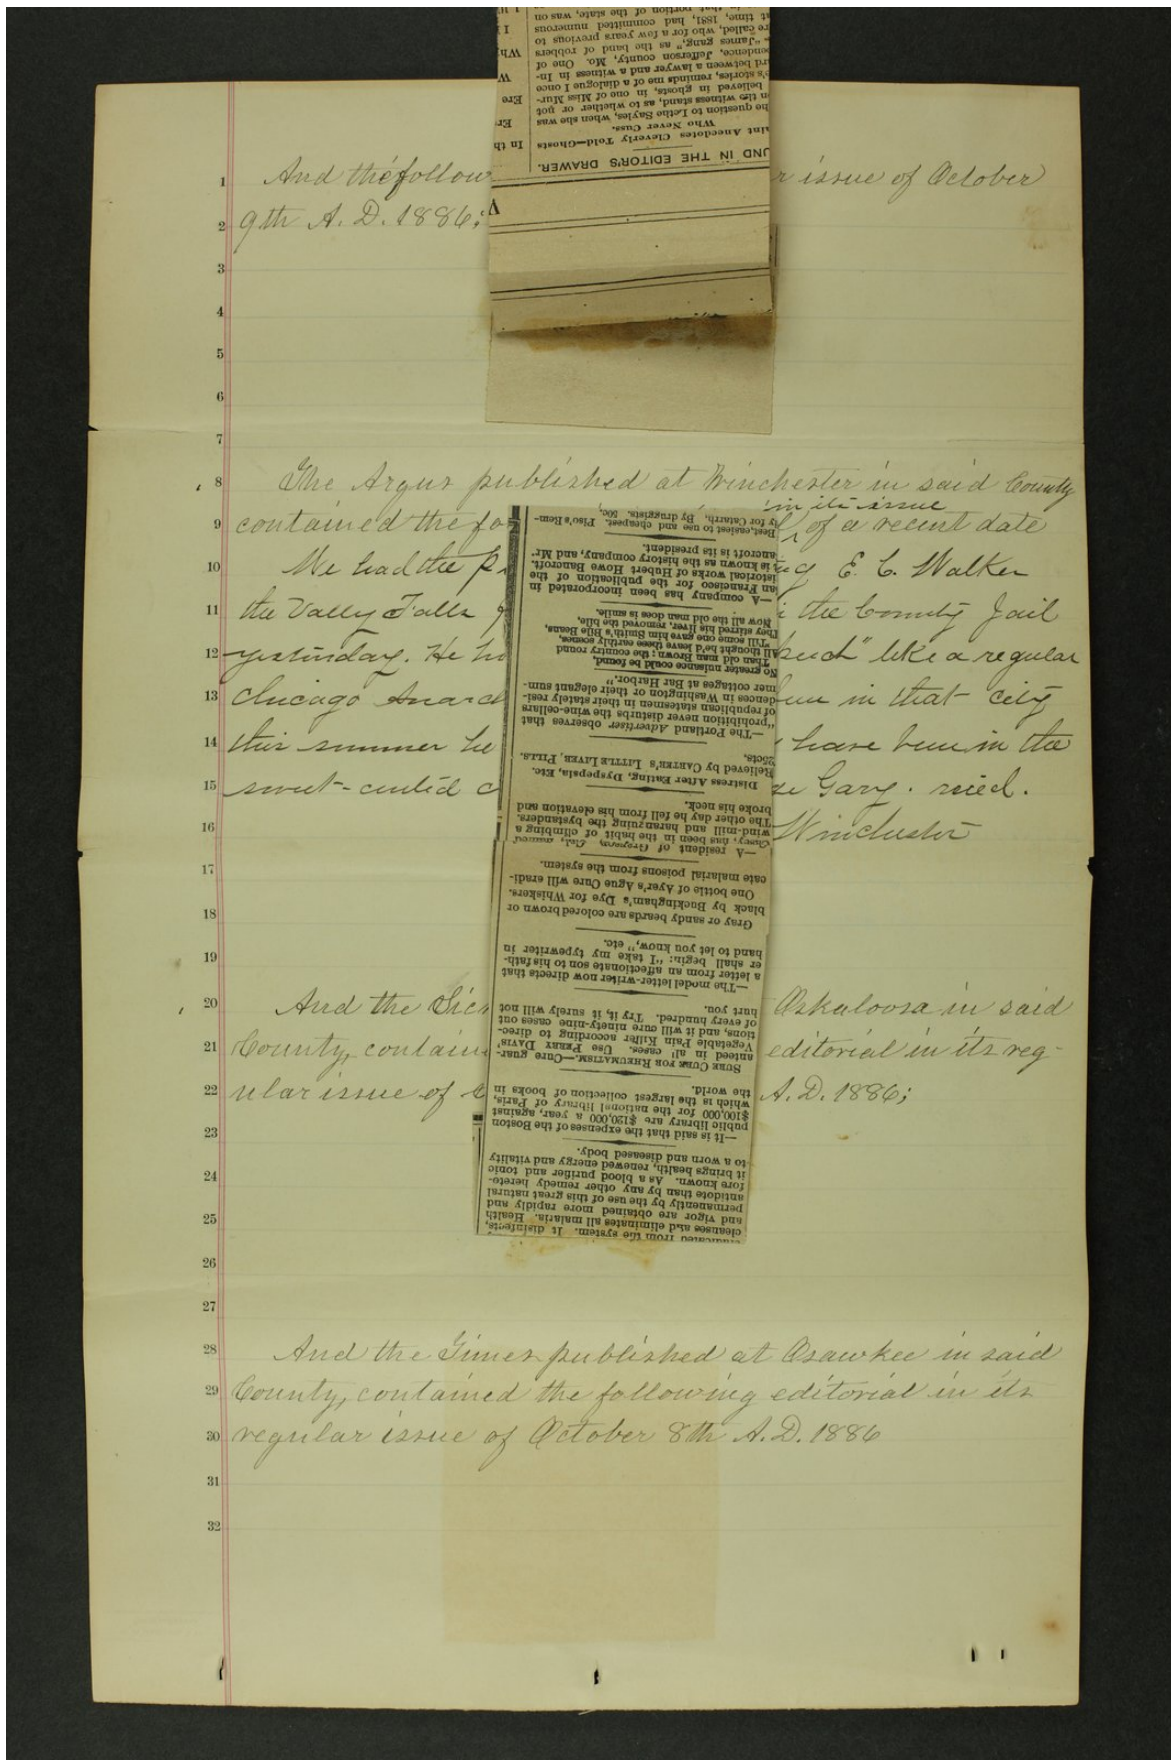 1 And the follow r issue of October
2 9th A. D. 1886;
3
4
5
6
7
8 The Argus published at Winchester in said County
in its issue
9 contained the fo l of a recent date
10 We had the p ng E. C. Walker
11 the Vally Falls the County Jail
12 yesturday. He like a regular
13 Chicago in that city
14 this summer he have been in the
15 sweet-cented c Gary.
16 Winchester
17
18
19
20 And the Oskaloosa in said
21 County, contain editorial in its reg-
22 ular issue of A. D. 1886;
23
24
25
26
27
28 And the Times published at Osawkee in said
29 County, contained the following editorial in its
30 regular issue of October 8th A. D. 1886
31
32
UND IN THE EDITOR'S DRAWER.
aint Anecdotes Cleverly Told—Ghosts
Who Never Cuss.
he question to Lethe Sayles, when she was
n the witness stand, as to whether or not
believed in ghosts, in one of Miss Mur-
's stories, reminds me of a dialogue I once
ard between a lawyer and a witness in In-
pendence, Jefferson county, Mo. One of
"James gang," as the band of robbers
re called, who for a few years previous to
at time, 1881, had committed numerous
in that portion of the state, was on
In th
Er
Ere
W
Wh
I
eradicated from the system. It disinfects,
cleanses and eliminates all malaria. Health
and vigor are obtained more rapidly and
permanently by the use of this great natural
antidote than by any other remedy hereto-
fore known. As a blood purifier and tonic
it brings health, renewed energy and vitality
to a worn and diseased body.
—It is said that the expenses of the Boston
public library are $120,000 a year, against
$100,000 for the national library of Paris,
which is the largest collection of books in
the world.
SURE CURE FOR RHEUMATISM.—Cure guar-
anteed in all cases. Use PERRY DAVIS'
Vegetable Pain Killer according to direc-
tions, and it will cure ninety-nine cases out
of every hundred. Try it, it surely will not
hurt you.
—The model letter-writer now directs that
a letter from an affectionate son to his fath-
er shall begin: "I take my typewriter in
hand to let you know," etc.
Gray or sandy beards are colored brown or
black by Buckingham's Dye for Whiskers.
One bottle of Ayer's Ague Cure will eradi-
cate malarial poisons from the system.
—A resident of Grayson, Cal., named
Casey, has been in the habit of climbing a
wind-mill and haranguing the bystanders.
The other day he fell from his elevation and
broke his neck.
Distress After Eating, Dyspepsia, Etc.
Relieved by CARTER'S LITTLE LIVER PILLS.
25cts.
—The Portland Advertiser observes that
"prohibition never disturbs the wine-cellars
of republican statesmen in their stately resi-
dences in Washington or their elegant sum-
mer cottages at Bar Harbor."
No greater nuisance could be found,
Than old man Brown; the country round
All thought he'd leave these earthly scenes,
'Till some one gave him Smith's Bile Beans,
They stirred his liver, removed the bile,
Now all the old man does is smile.
—A company has been incorporated in
an Francisco for the publication of the
istorical works of Hubert Howe Bancroft.
is known as the history company, and Mr.
ancroft is its president.
Best, easiest to use and cheapest. Piso's Rem-
dy for Catarrh. By druggists. 50c.